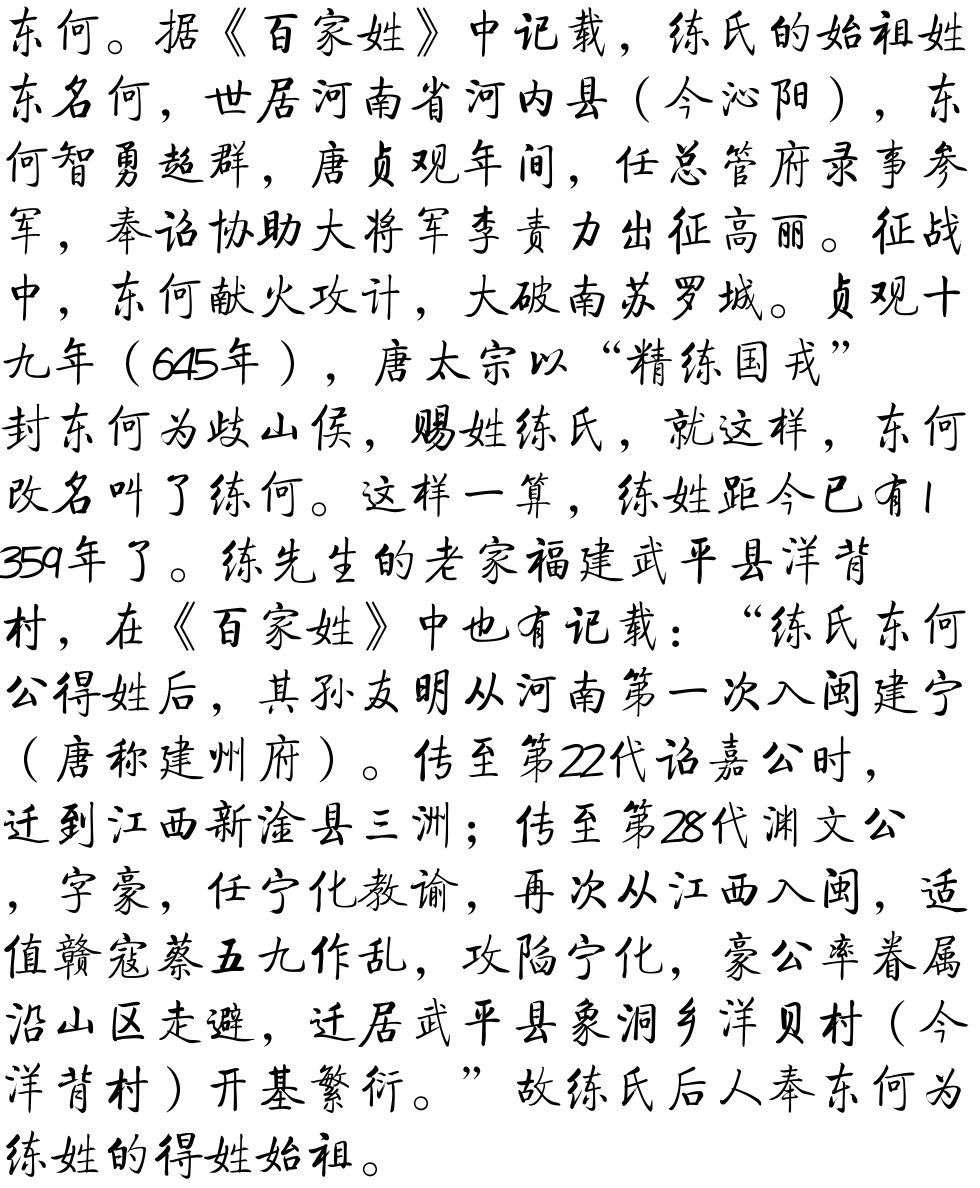 东何。据《百家姓》中记载，练氏的始祖姓
东名何，世居河南省河内县（今沁阳），东
何智勇超群，唐贞观年间，任总管府录事参
军，奉诏协助大将军李责力出征高丽。征战
中，东何献火攻计，大破南苏罗城。贞观十
九年（645年），唐太宗以“精练国戎”
封东何为歧山侯，赐姓练氏，就这样，东何
改名叫了练何。这样一算，练姓距今已有1
359年了。练先生的老家福建武平县洋背
村，在《百家姓》中也有记载：“练氏东何
公得姓后，其孙友明从河南第一次入闽建宁
（唐称建州府）。传至第22代诏嘉公时，
迁到江西新淦县三洲；传至第28代渊文公
，字豪，任宁化教谕，再次从江西入闽，适
值赣寇蔡五九作乱，攻陷宁化，豪公率眷属
沿山区走避，迁居武平县象洞乡洋贝村（今
洋背村）开基繁衍。”故练氏后人奉东何为
练姓的得姓始祖。